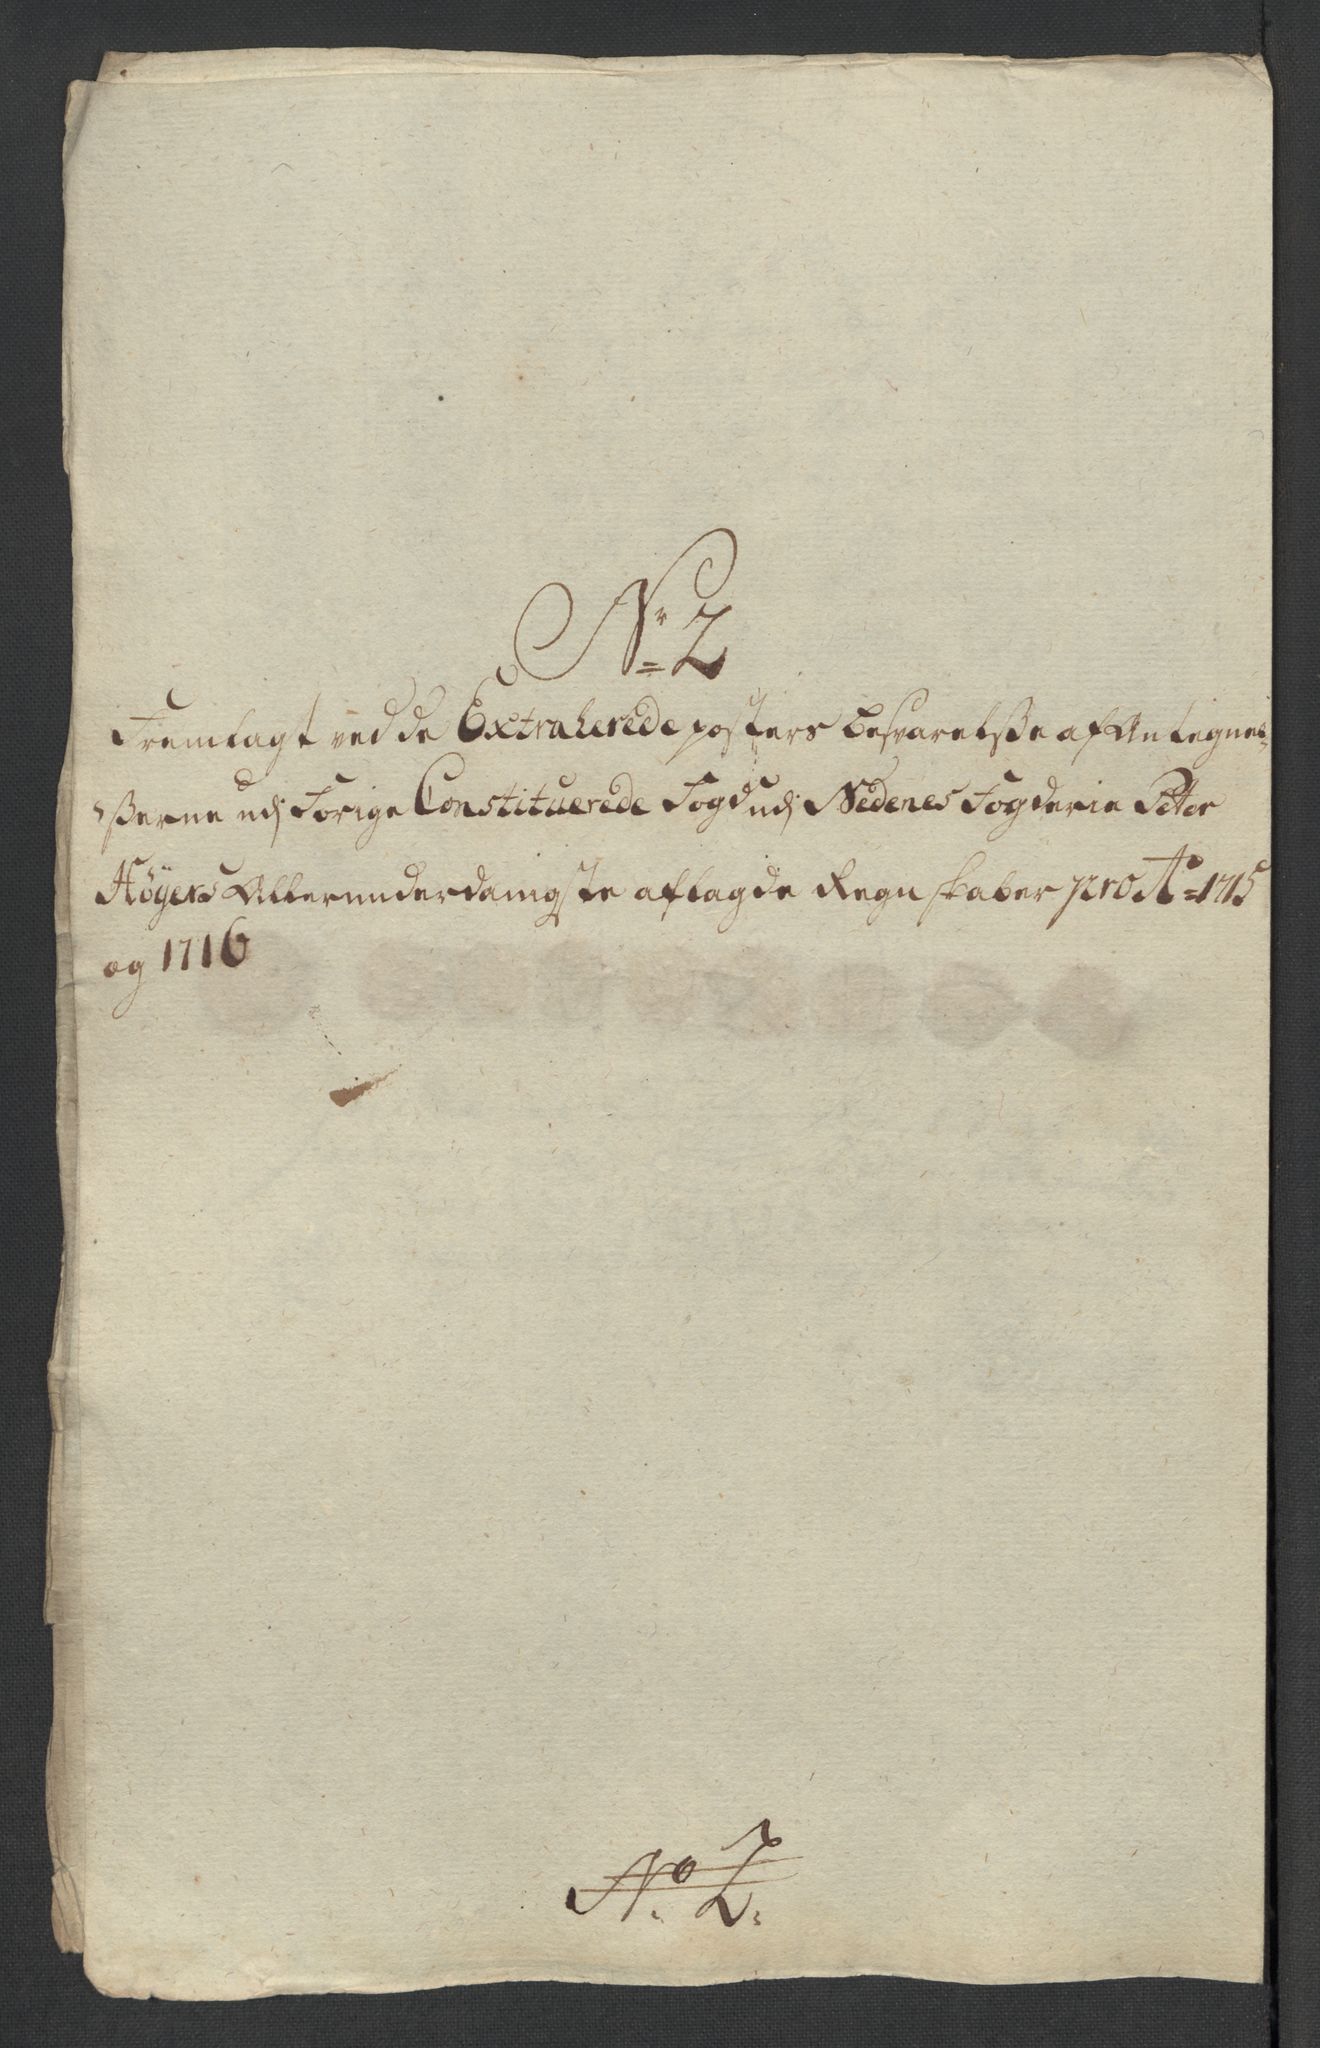 Nr 2
Fremlagt ved de Extraherede posters besvarelsse af Antegnel-
sserne udj Forige Constituerede Fogd udj Nedenes Fogderie Peter
Høyers Allerunderdanigste aflagde Regnskaber pro Ao 1715
og 1716
No. 2.